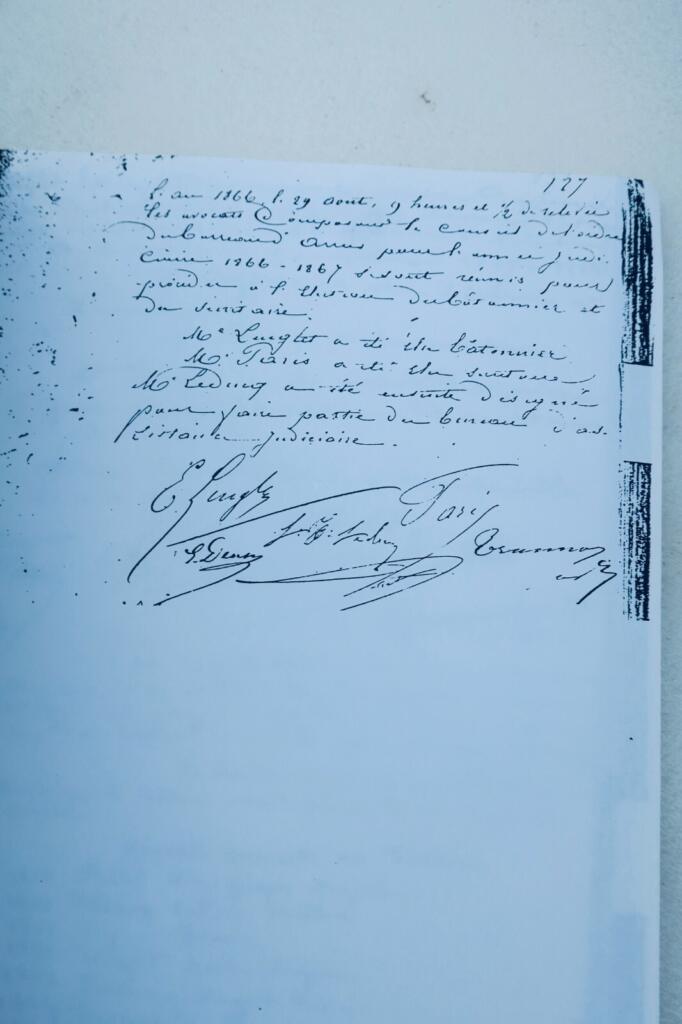 127
L'an 1866, le 29 août, 9 heures et 1/2 de relevée
les avocats composant le conseil de l'ordre
du barreau d'Arras pour l'année judi-
ciaire 1866-1867 se sont réunis pour
procéder à l'élection du bâtonnier et
du secrétaire.
Me Lenglet a été élu bâtonnier
Me Paris a été élu secrétaire
Me Leducq a été ensuite désigné
pour faire partie du bureau d'as-
sistance judiciaire.
E. Lenglet Paris